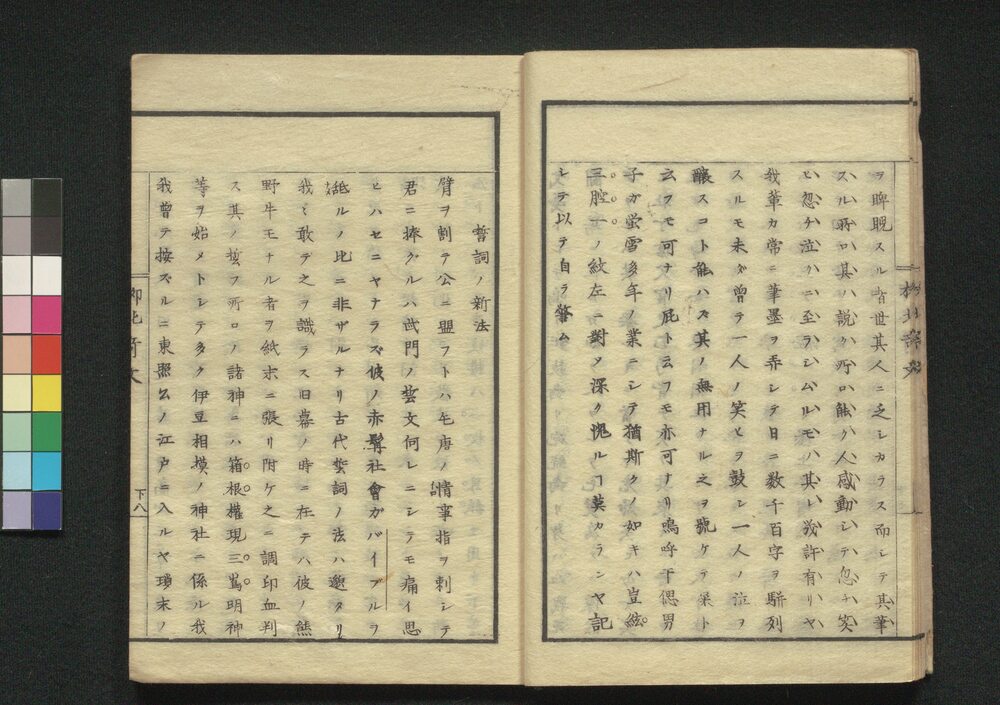 ヲ睥睨スル者世其人ニ乏シカラス而シテ其筆
スル所ロ其ハ説ク所ロ能ク人感動シテ忽チ笑
ヒ忽チ泣クニ至ラシムルモハ其レ幾許有リヤ
我輩カ常ニ筆墨ヲ弄シテ日ニ数千百字ヲ駢列
スルモ未ダ曾テ一人ノ笑ヒヲ鼓シ一人ノ泣ヲ
醸スコト能ハス其ノ無用ナル之ヲ號ケテ屎ト
云フモ可ナリ屁ト云フモ亦可ナリ嗚呼干偲男
子ガ蛍雪多年ノ業ニシテ猶斯クノ如キハ豈絃
三腔一ノ紋左一對メ深ク愧ルヿ莫カランヤ記
シテ以テ自ラ警ム
柳北奇文
誓詞ノ新法
臂ヲ割テ公ニ盟フトハ毛唐ノ情事指ヲ刺シテ
君ニ捧クルハ武門ノ芸文何レニシテモ痛イ思
ヒハセニヤナラズ彼ノ赤髯社會ガバイブルヲ
舐ルノ比ニ非ザルナリ古代誓詞ノ法ハ邈タリ
我々敢テ之ヲ識ラス旧幕ノ時ニ在テハ彼ノ熊
野牛モナル者ヲ紙末ニ張リ附ケ之ニ調印血判
ス其ノ誓フ所ロノ諸神ニハ箱根権現三嶌明神
等ヲ始メトシテ多ク伊豆相摸ノ神社ニ係ル我
我曾テ按ズルニ東照公ノ江戸ニ入ルヤ瑣末ノ
柳北奇文
下八